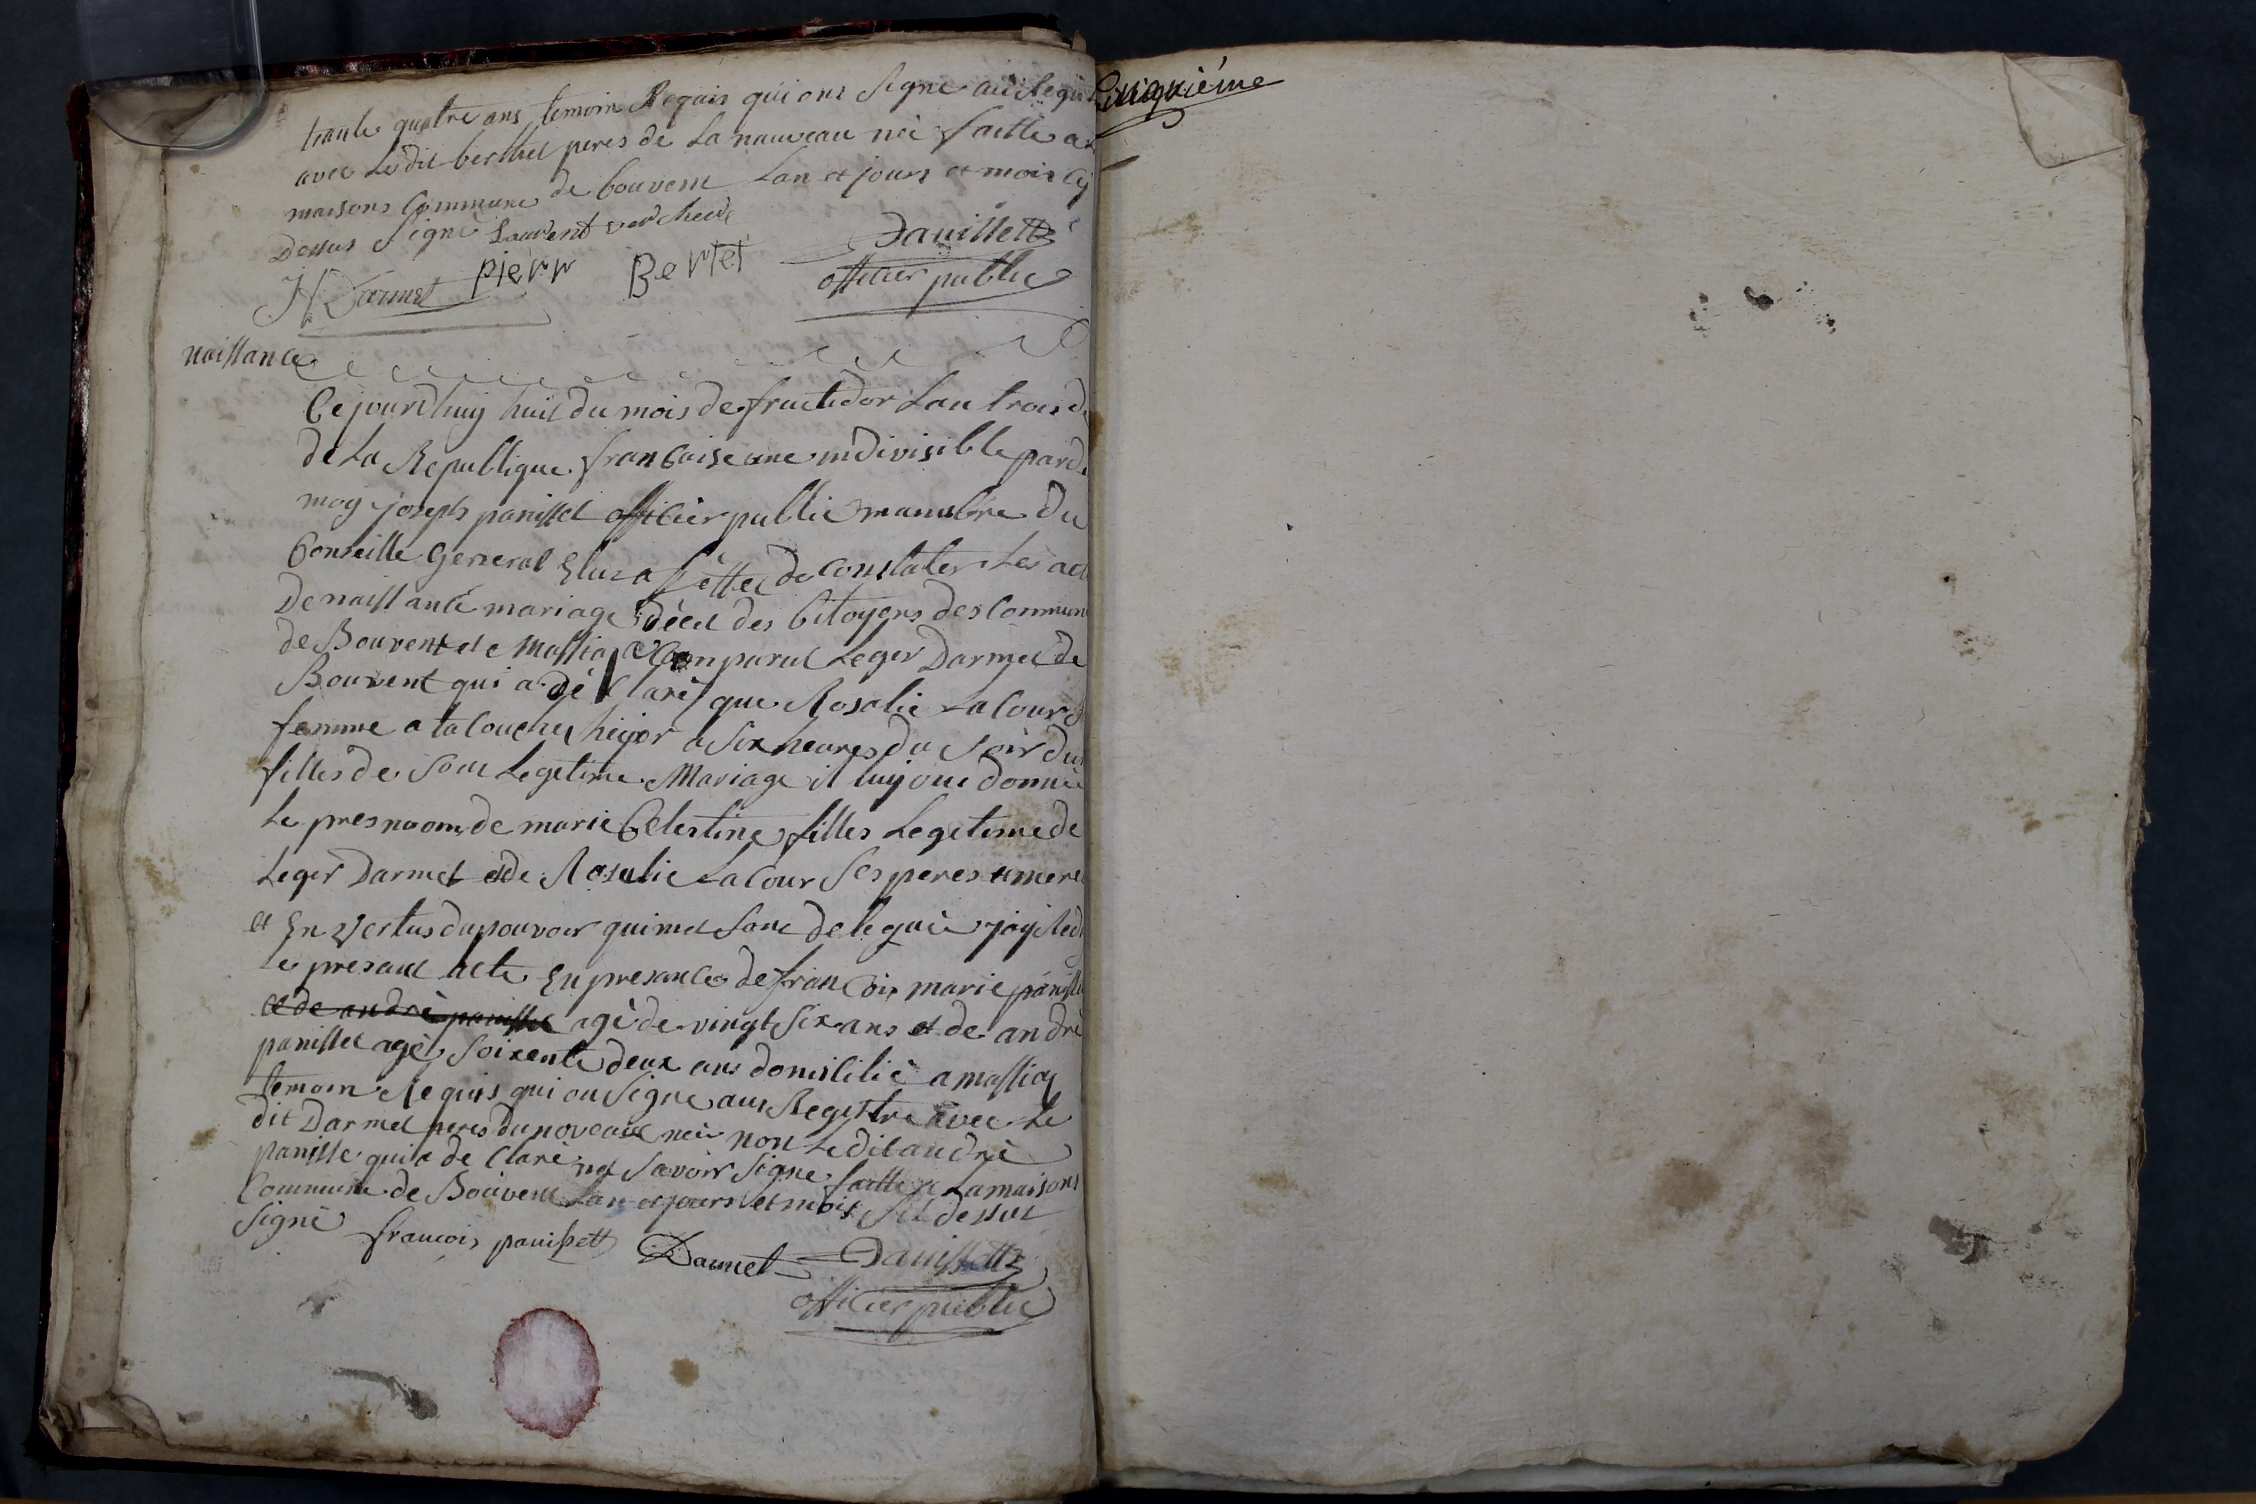 trante quatre ans temoin Requis qui ont signe au Regis
avec Ledit berthet peres de La nauveau née faitte a
maisons Commune de bouvent Lan et jours et mois Cy
dessus signé Laurent vercheire
JH Darmet pierr Bertet Panissett
officier public
naissance
Cejourdhuy huit du mois de fructidor Lan trois de
de La Republique francaise une indivisible par de
moy joseph panisset officier public manubre du
Conseille General Elus a Leffet de Constater Les act
De naissance mariage décet des Citoyens des Commun
de Bouvent et Massia Comparut Leger Darmet de
Bouvent qui a déClaré que Rosalie LaCour sa
femme a taCouchez hiyer a Six heures du soir du
filles de Son Legetime Mariage il luy ont donnée
Le presnoom de marie Celestine filles Legeteme de
Leger Darmet et de Rosalie LaCour Ses peres et mere
et En vertus du pouvoir qui met sont deleguée jay Red
le presant acte En presance de francois marie panisse
et de andré panisset agé de vingt Six ans et de andré
panisset agé Soixente deux ans domislilié a massiaz
temoin Requis qui on Signe aux Registre avec Le
dit Darmet peres du noveaux née non Ledit andré
panisse qui a de Claré net Savoir Signe faitte a Lamaisons
Commune de Bouvent Lan et jours et mois Sil dessus
Signé francois panissett Darmet Panissett
officier public
Cinquiéme